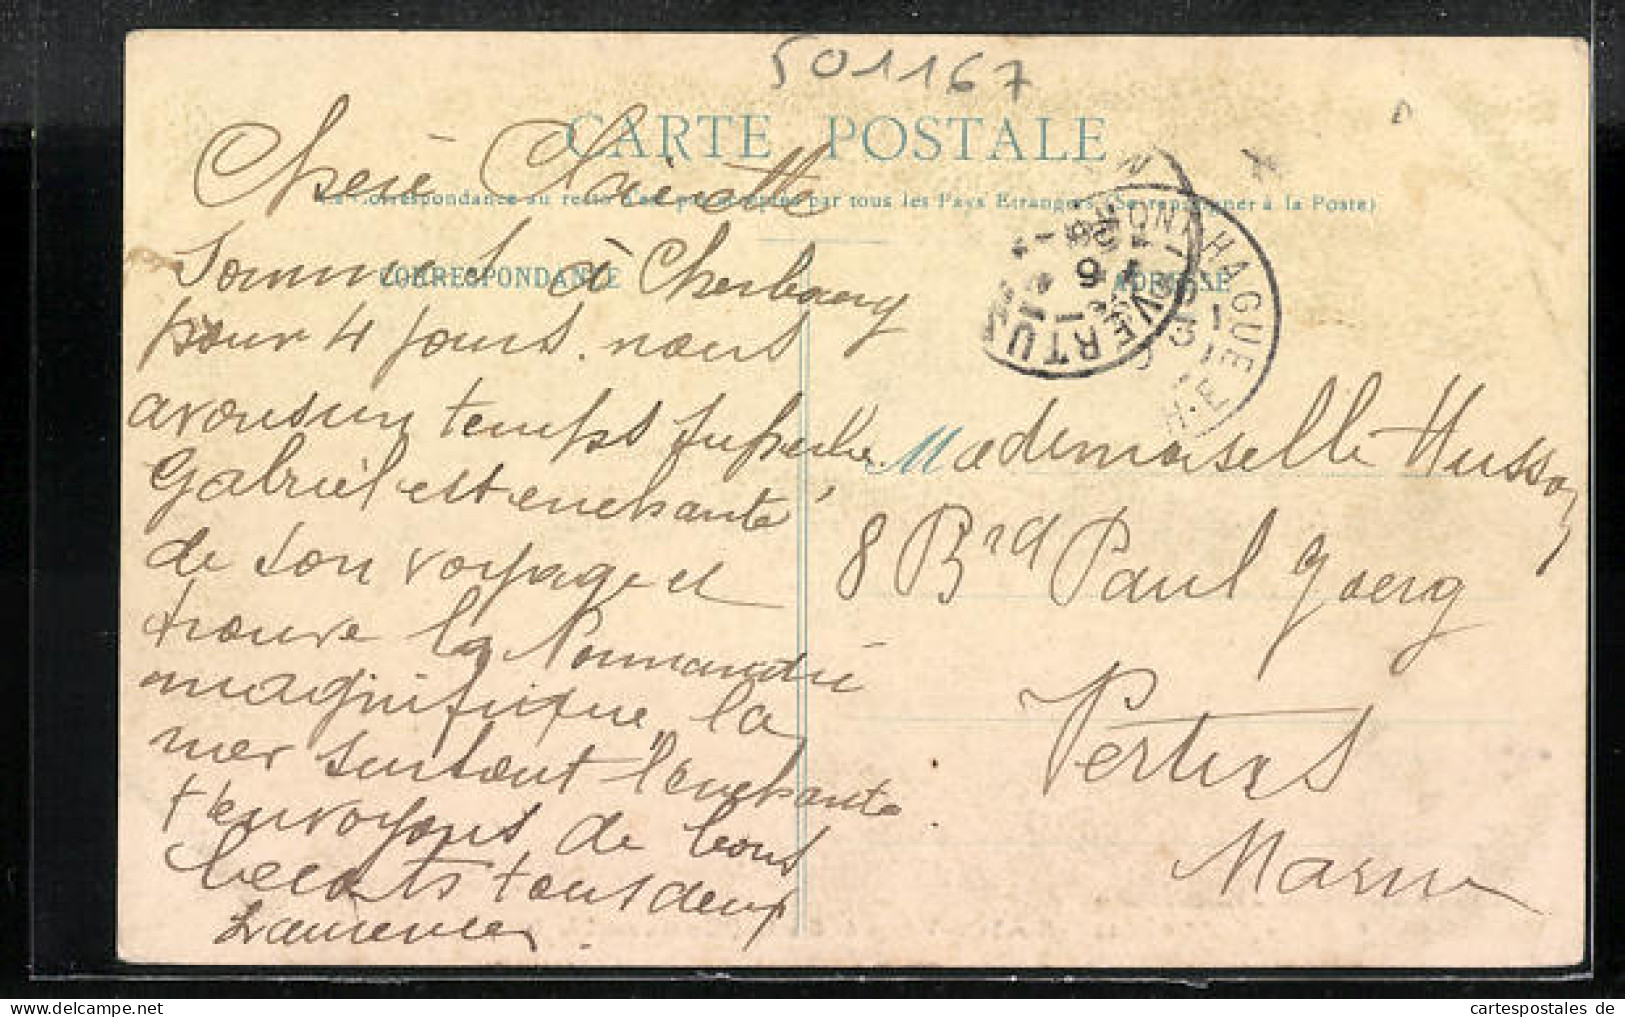 501167
CARTE POSTALE
La Correspondance au recto n'est pas acceptée par tous les Pays Etrangers (Se renseigner à la Poste)
CORRESPONDANCE
ADRESSE
Chère Clairette
Sommes à Cherbourg
pour 4 jours. nous
avons un temps superbe.
Gabriel est enchanté
de son voyage et
trouve la Normandie
magnifique, la
mer surtout l'enchante.
t'envoyons de bons
bécots tous deux
Laurence
VERTUS
MARNE
HAGUE
Mademoiselle Husson
8 Brd Paul Goerg
Vertus
Marne
cartespostales de